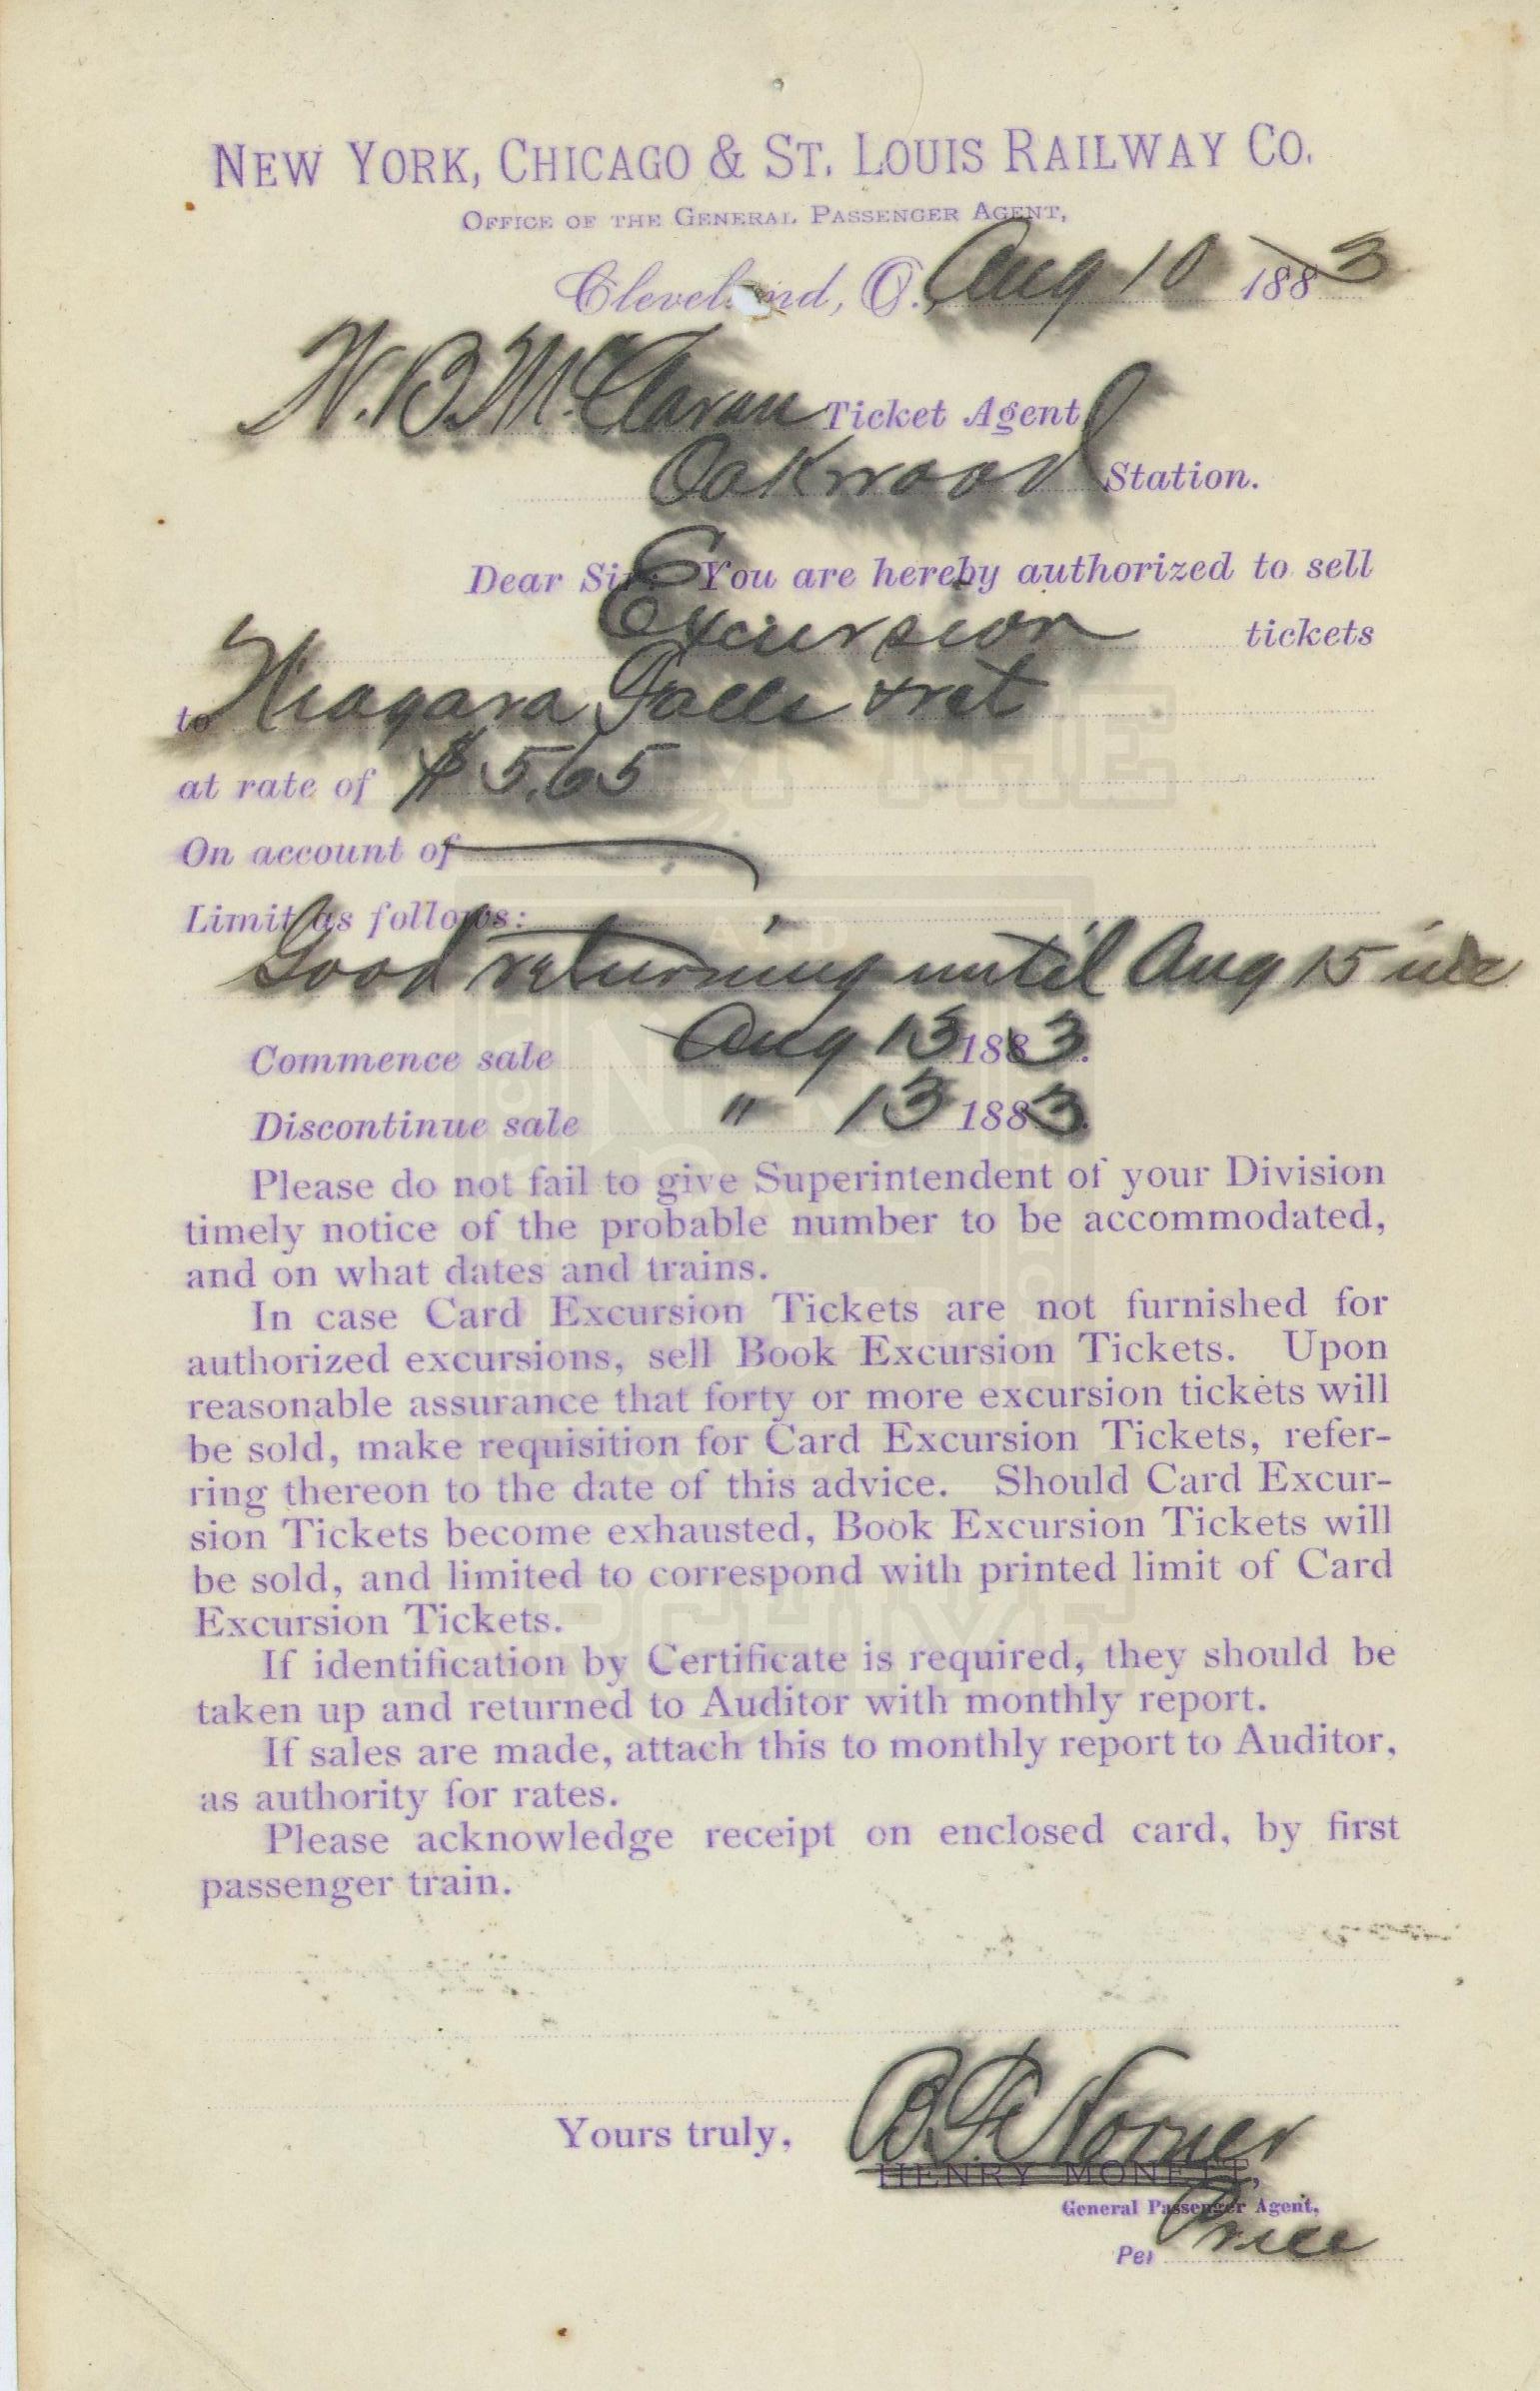 NEW YORK, CHICAGO & ST. LOUIS RAILWAY CO.
OFFICE OF THE GENERAL PASSENGER AGENT,
Cleveland, O. Aug 10 1883
Ticket Agent
Oakwood Station.
Dear Sir: You are hereby authorized to sell
Excursion tickets
to Niagara Falls & ret
at rate of $5.65
On account of
Limit as follows:
Good returning until Aug 15 inc
Commence sale Aug 13 1883.
Discontinue sale " 13 1883.
Please do not fail to give Superintendent of your Division
timely notice of the probable number to be accommodated,
and on what dates and trains.
In case Card Excursion Tickets are not furnished for
authorized excursions, sell Book Excursion Tickets. Upon
reasonable assurance that forty or more excursion tickets will
be sold, make requisition for Card Excursion Tickets, refer-
ring thereon to the date of this advice. Should Card Excur-
sion Tickets become exhausted, Book Excursion Tickets will
be sold, and limited to correspond with printed limit of Card
Excursion Tickets.
If identification by Certificate is required, they should be
taken up and returned to Auditor with monthly report.
If sales are made, attach this to monthly report to Auditor,
as authority for rates.
Please acknowledge receipt on enclosed card, by first
passenger train.
Yours truly, B. F. Horner
HENRY MONETT,
General Passenger Agent,
Per Price